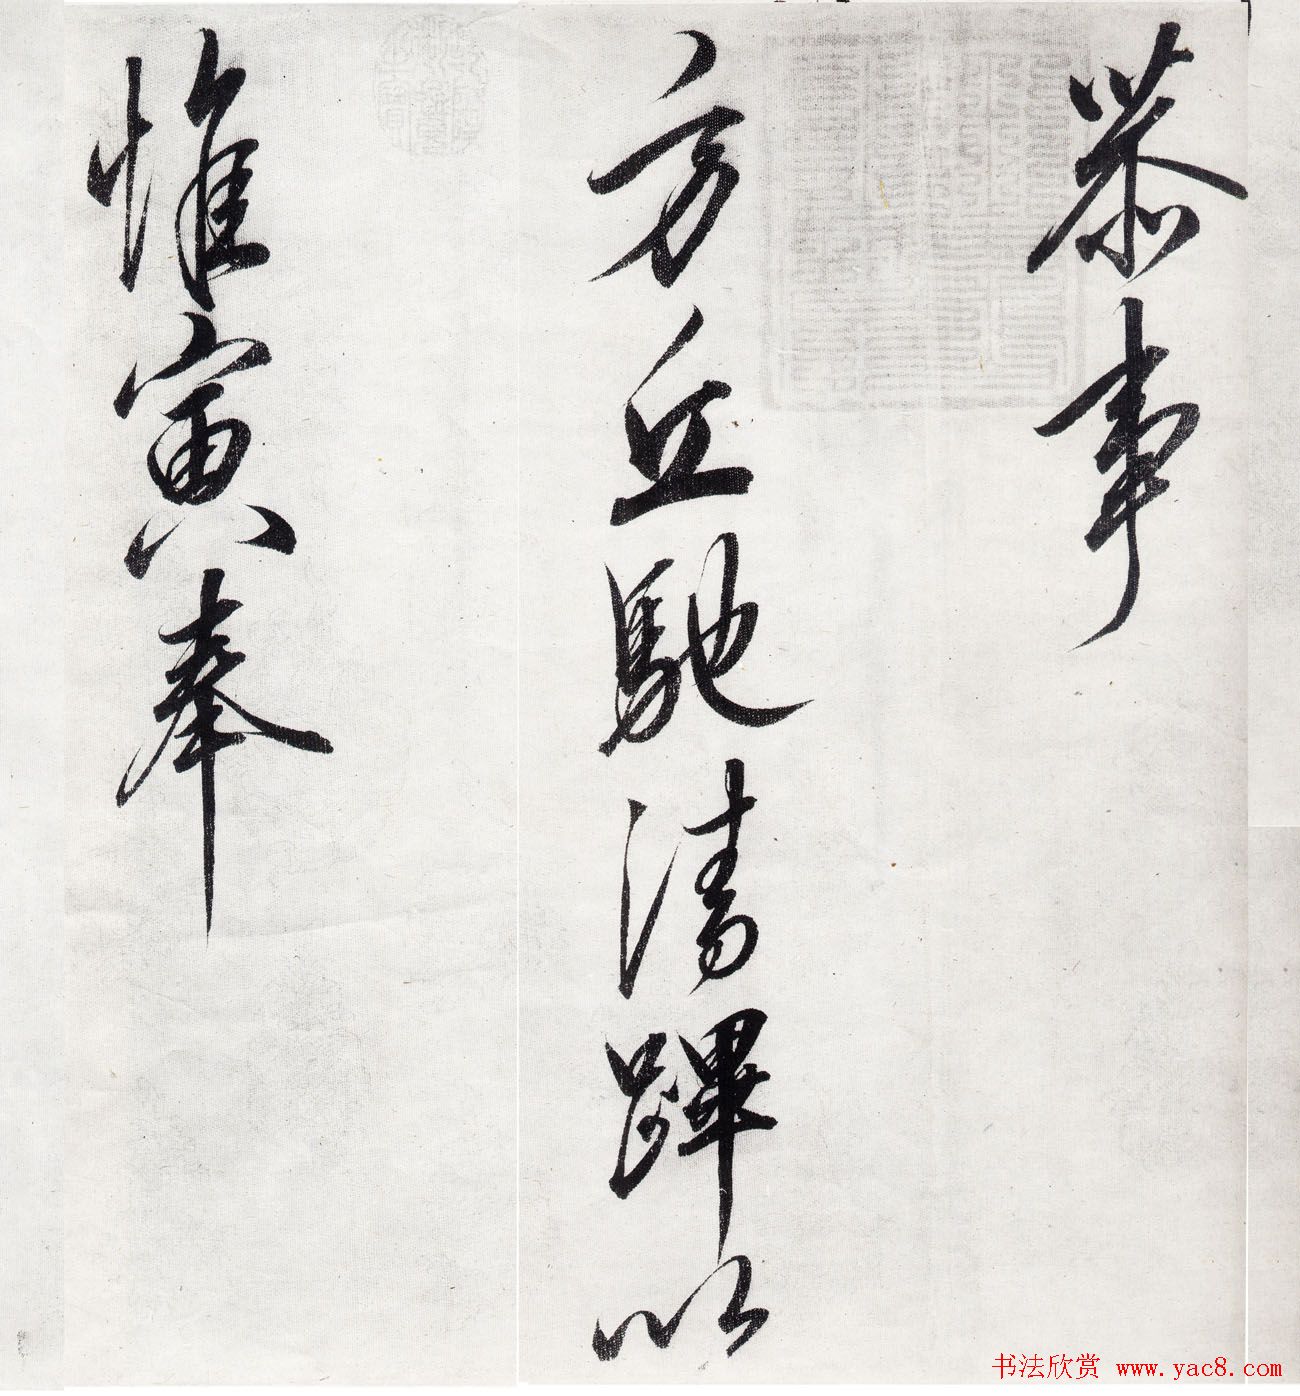 恭事
方丘馳清蹕以
惟寅奉
书法欣赏 www.yac8.com